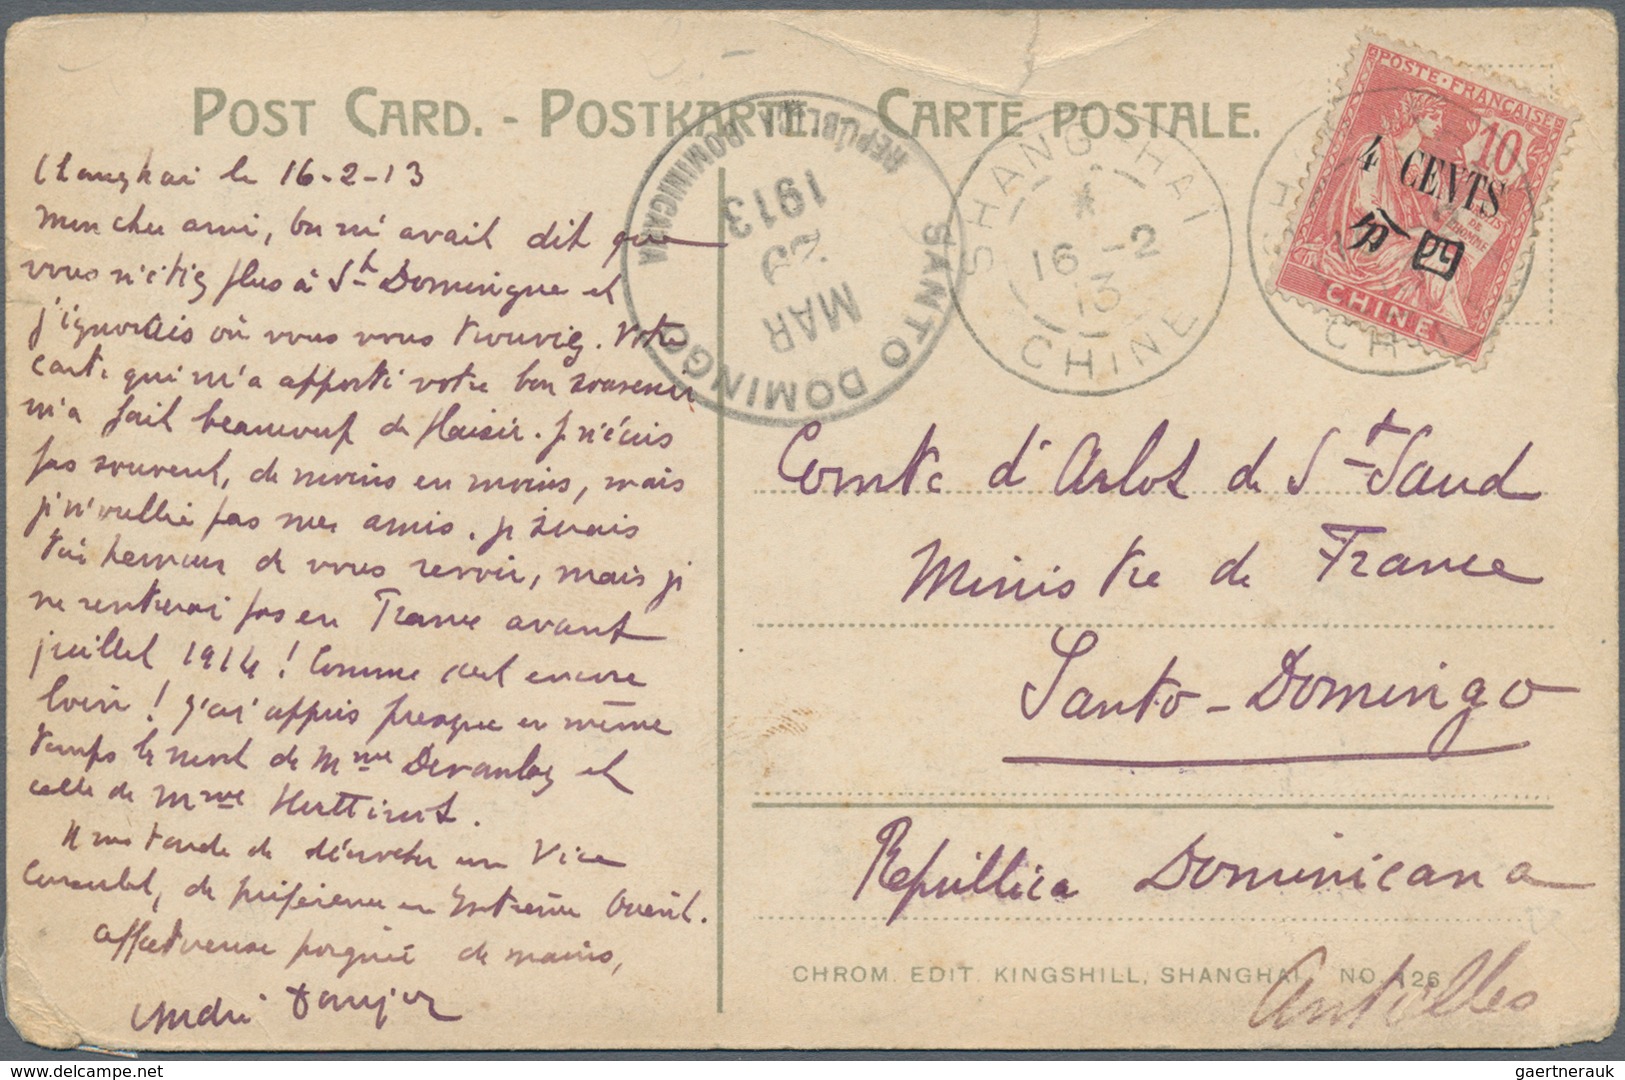 POST CARD. - POSTKARTE. CARTE POSTALE.
Changhai le 16-2-13
Mon cher ami, on m'avait dit que
vous n'étiez plus à St Domingue et
j'ignorais où vous vous trouviez. Votre
carte qui m'a apporté votre bon souvenir
m'a fait beaucoup de plaisir. je n'écris
pas souvent, de moins en moins, mais
je n'oublie pas mes amis. je serais
très heureux de vous revoir, mais je
ne rentrerai pas en France avant
juillet 1914! Comme c'est encore
loin! J'ai appris presque en même
temps la mort de Mme et
celle de Mme
Il me tarde de un Vice
Consulat, de préférence en Extrême Orient.
affectueuse poignée de mains,
André
REPÚBLICA DOMINICANA
SANTO DOMINGO
MAR
29
1913
SHANG-HAI
16-2
13
CHINE
POSTE FRANÇAISE
10
4 CENTS
分四
CHINE
Comte d'Arlot de St Saud
Ministre de France
Santo-Domingo
Républica Dominicana
Antilles
CHROM. EDIT. KINGSHILL, SHANGHAI. NO. 126
gaertnerauk